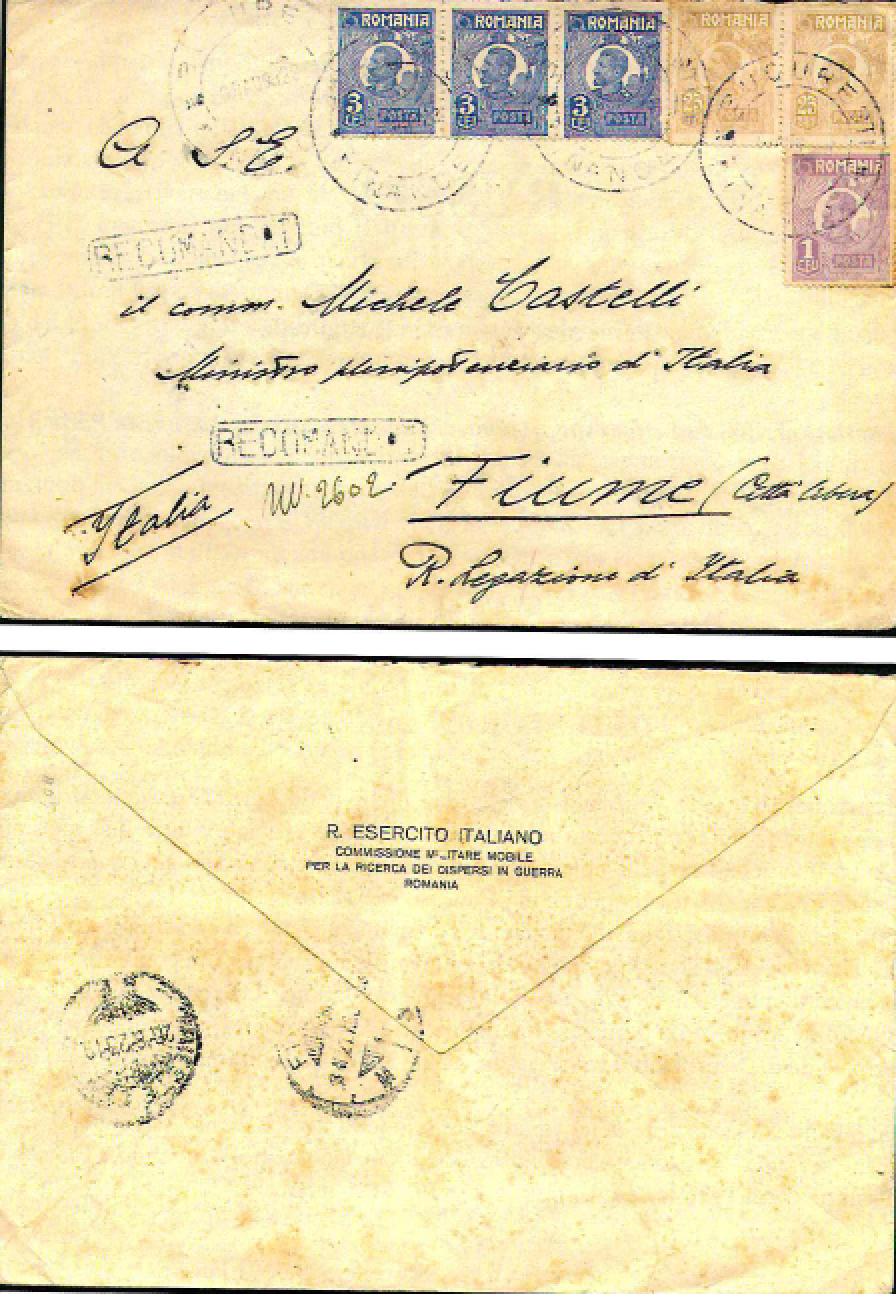 ROMANIA ROMANIA ROMANIA ROMANIA ROMANIA
3 LEI POSTA 3 LEI POSTA 3 LEI POSTA 25 25
A S.E.
ROMANIA
1 LEU POSTA
il comm. Michele Castelli
Ministro plenipotenciario d'Italia
RECOMAND
Italia
2602
Fiume (Città libera)
R. Legazione d'Italia
R. ESERCITO ITALIANO
COMMISSIONE MILITARE MOBILE
PER LA RICERCA DEI DISPERSI IN GUERRA
ROMANIA